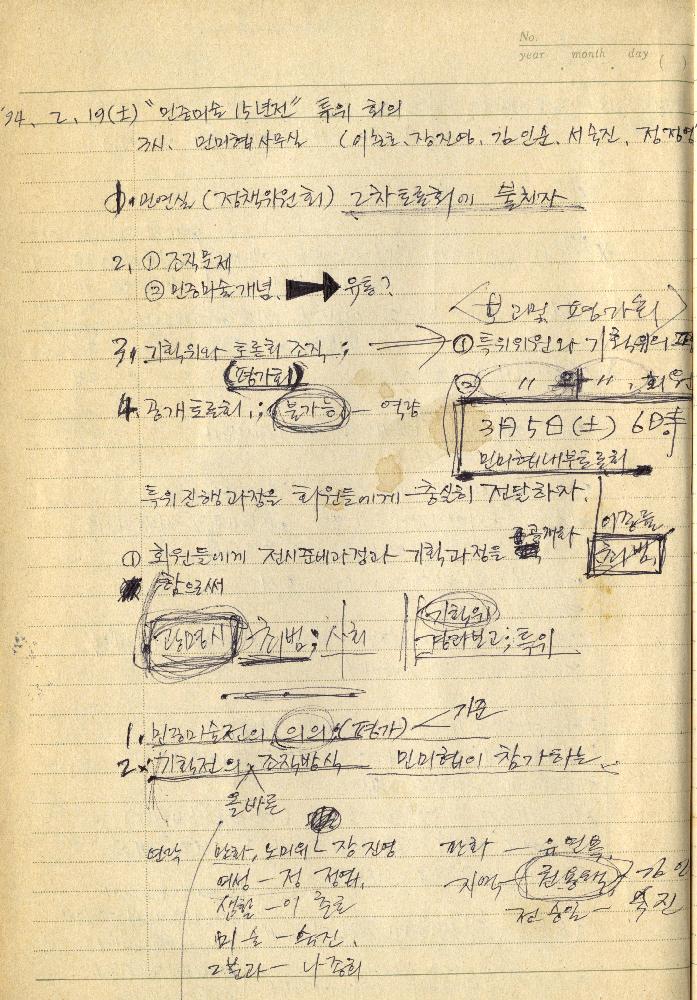 No.
year month day ( )
'94. 2. 19(土) "민중미술 15년전" 특위 회의
3시. 민미협 사무실 (이춘호, 장진영, 김인순, 서숙진, 정정엽
1. 민연실 (정책위원회) 2차토론회에 불치자
2. ① 조직문제
② 민중미술개념. ➡ 유통?
<보고및 평가회>
3. 기획위와 토론회 조직; → ① 특위위원와 기획위의
(평가회) ② 〃 와 〃, 회원
4. 공개토론회.; (불가능) - 역량
3月 5日(土) 6時
민미협내부토론회
특위진행과정을 회원들에게 충실히 전달하자.
① 회원들에게 전시준비과정과 기획과정을 공개하
함으로써
최범
광명시 최범; 사회
기획위
경과보고; 특위
1. 민중미술전의 (의의).(평가) < 기준
2. 기획전의 조직방식 민미협이 참가하는
올바른
연락 만화, 노미위 - 장진영 만화 - 유연복,
여성 - 정정엽, 지역 - 김인
생활 - 이춘호 전승일 - 숙진
미술 - 숙진.
그분과 - 나종희